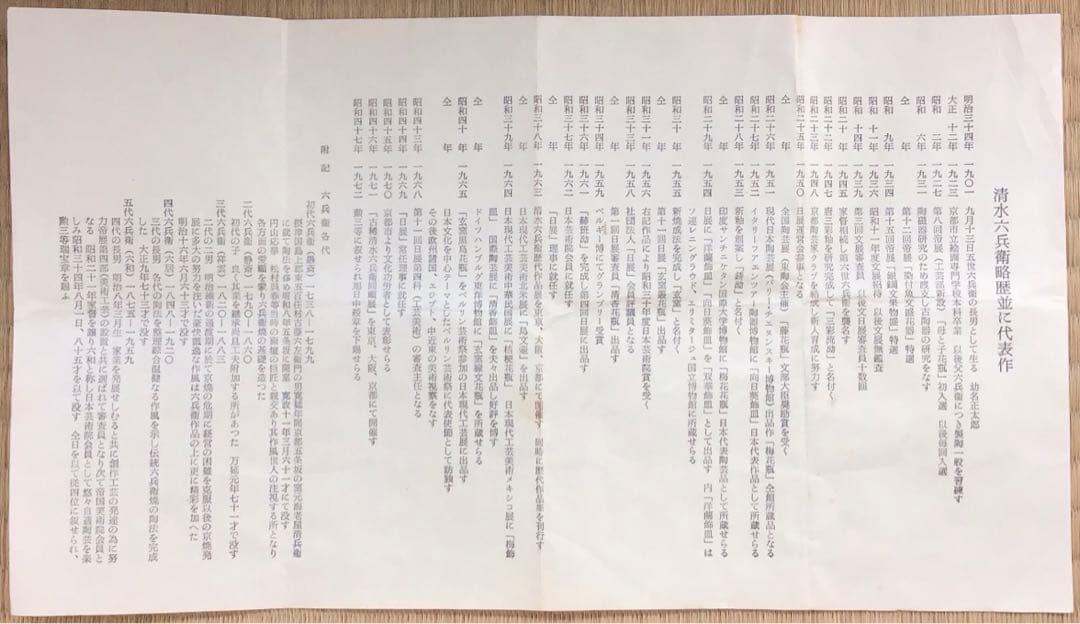 清水六兵衛略歴並に代表作
明治三十四年 一九〇一 九月十三日五世六兵衛の長男として生る 幼名正太郎
大正 十二年 一九二三 京都市立絵画専門学校本科卒業 以後父六兵衛につき製陶一般を習練す
昭和 二年 一九二七 第八回帝展(工芸部新設)「母と子花瓶」初入選 以後毎回入選
昭和 六年 一九三一 陶磁器研究のため渡支し古陶磁の研究をなす
仝 年 第十二回帝展「染付魚文盛花器」特選
昭和 九年 一九三四 第十五回帝展「銹泑文果物盛」特選
昭和 十一年 昭和十一年度文展招待 以後文展無鑑査
昭和 十四年 一九三九 第三回文展審査員 以後文日展審査員十数回
昭和二十 年 一九四五 家督相続し第六世六兵衛を襲名す
昭和二十二年 一九四七 唐三彩釉を研究完成して「三彩流泑」と名付く
昭和二十三年 一九四八 京都陶芸家クラブを結成し新人育成に努力す
昭和二十五年 一九五〇 日展運営会参事となる
仝 年 全国陶芸展(東陶会主催)「藤花瓶」文部大臣奨励賞を受く
昭和二十六年 一九五一 現代日本陶芸展(パリーチェルンスキー博物館)出品作「梅花瓶」仝館所蔵品となる
仝 年 イタリーファエンツア陶器博物館に「向日葵飾皿」日本代表作品として所蔵せらる
昭和二十八年 一九五三 新釉を創案し「銹泑」と名付く
仝 年 印度サンチニケタン国際大学博物館に「梅花瓶」日本代表陶芸品として所蔵せらる
昭和二十九年 一九五四 日展に「洋蘭飾皿」「向日葵飾皿」を「双華飾皿」として出品す 内「洋蘭飾皿」は
ソ連レニングラウド、エリミタージュ国立博物館に所蔵せらる
昭和三十 年 一九五五 新焼成法を完成し「玄窯」と名付く
仝 年 第十一回日展「玄窯叢花瓶」出品す
昭和三十一年 一九五六 右記作品により昭和三十年度日本芸術院賞を受く
昭和三十三年 一九五八 社団法人「日展」会員 評議員となる
仝 年 第一回日展審査員「魚文壷」を出品す
昭和三十四年 一九五九 ベルギー博にてグランプリー受賞
昭和三十六年 一九六一 「赫斑泑」を完成し第四回日展に出品す
昭和三十七年 一九六二 日本芸術院会員に就任す
仝 年 「日展」理事に就任す
昭和三十八年 一九六三 清水六兵衛歴代作品展を東京、大阪、京都にて開催す 同時に歴代作品集を刊行す
仝 年 日本現代工芸美術日本北米展に「魚文壷」を出品す
昭和三十九年 一九六四 日本現代工芸美術中華民国展に「桔梗花瓶」 日本現代工芸美術メキシコ展に「梅飾
皿」 国際陶芸展に「清香飾皿」を夫々出品し好評を博す
仝 年 ドイツハンブルグ東洋博物館に「玄窯線文花瓶」を所蔵せらる
昭和四十 年 一九六五 「玄窯黒鳥花瓶」をベルリン芸術祭参加の日本現代工芸展に出品す
仝 年 日本文化を中心テーマとしたベルリン芸術祭に代表使節として訪独す
その後欧州諸国、エジプト、中近東の美術視察をなす
昭和四十三年 一九六八 第十一回日展第四科(工芸美術)の審査主任となる
昭和四十四年 一九六九 「日展」常任理事に就任す
昭和四十五年 一九七〇 京都市より文化功労者として表彰せらる
昭和四十六年 一九七一 「古稀清水六兵衛回顧展」を東京、大阪、京都にて開催す
昭和四十七年 一九七二 勲三等に叙せられ旭日中綬章を下賜せらる
附記 六兵衛各代
初代六兵衛(静斎) 一七三八―一七九九
摂津国島上郡東五百住村古藤六左衛門の男寛延年間京都五条坂の窯元海老屋清兵衛
に就て製陶法を修め明和八年五条坂に開窯 寛政十一年三月六十一才にて没す
円山応挙 松村呉春等当時の画壇の巨匠と親交あり其作風世人の注視する所となり
各方面の愛顧を蒙り六兵衛焼の基礎を造った
二代六兵衛(静斎) 一七九〇―一八六〇
初代の子 良く其業を継承尚且工夫附加する所があつた 万延元年七十一才で没す
三代六兵衛(祥雲) 一八二〇―一八八三
二代の二男 明治維新の過渡期に於て京焼の危期に経営の困難を克服以後の京焼発
展に多大の努力を注ぎ其の豪放にして洒脱飄逸な作風は六兵衛作品の上に更に精彩を加へた
明治十六年六月六十三才で没す
四代六兵衛(六居) 一八四八―一九二〇
三代の長男 各代の陶法を整理綜合し温健なる作風を示し伝統六兵衛焼の陶法を完成
した 大正九年七十三才で没す
五代六兵衛(六和) 一八七五―一九五九
四代の長男 明治八年三月生れ 家業を発展せしむると共に創作工芸の発達の為に努
力帝展第四部(美術工芸)の設置と共に選ばれて審査員となり次で帝国美術院会員と
なる 昭和二十一年家督を譲り六和と称し日本芸術院会員として悠々自適陶芸を楽
しみ昭和三十四年八月一日、八十五才を以て没す 仝日を以て従四位に叙せられ、
勲三等瑞宝章を賜ふ